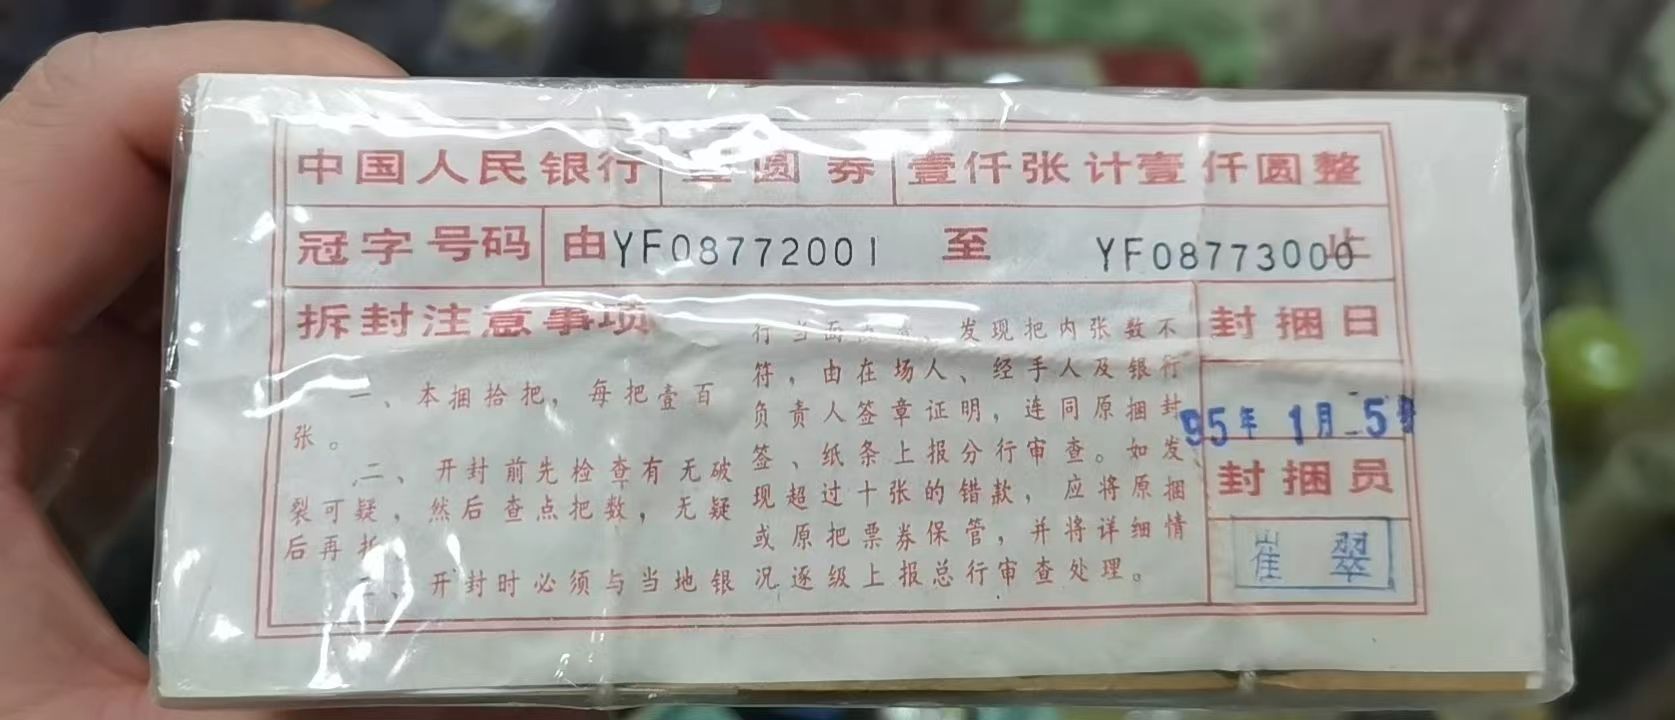 中国人民银行 壹圆券 壹仟张计壹仟圆整
冠字号码 由YF08772001 至 YF08773000止
拆封注意事项
一、本捆拾把，每把壹百
张。
二、开封前先检查有无破
裂可疑，然后查点把数，无疑
后再拆
三、开封时必须与当地银
行当面 发现把内张数不
符，由在场人、经手人及银行
负责人签章证明，连同原捆封
签、纸条上报分行审查。如发
现超过十张的错款，应将原捆
或原把票券保管，并将详细情
况逐级上报总行审查处理。
封捆日
95年1月 5
封捆员
崔翠